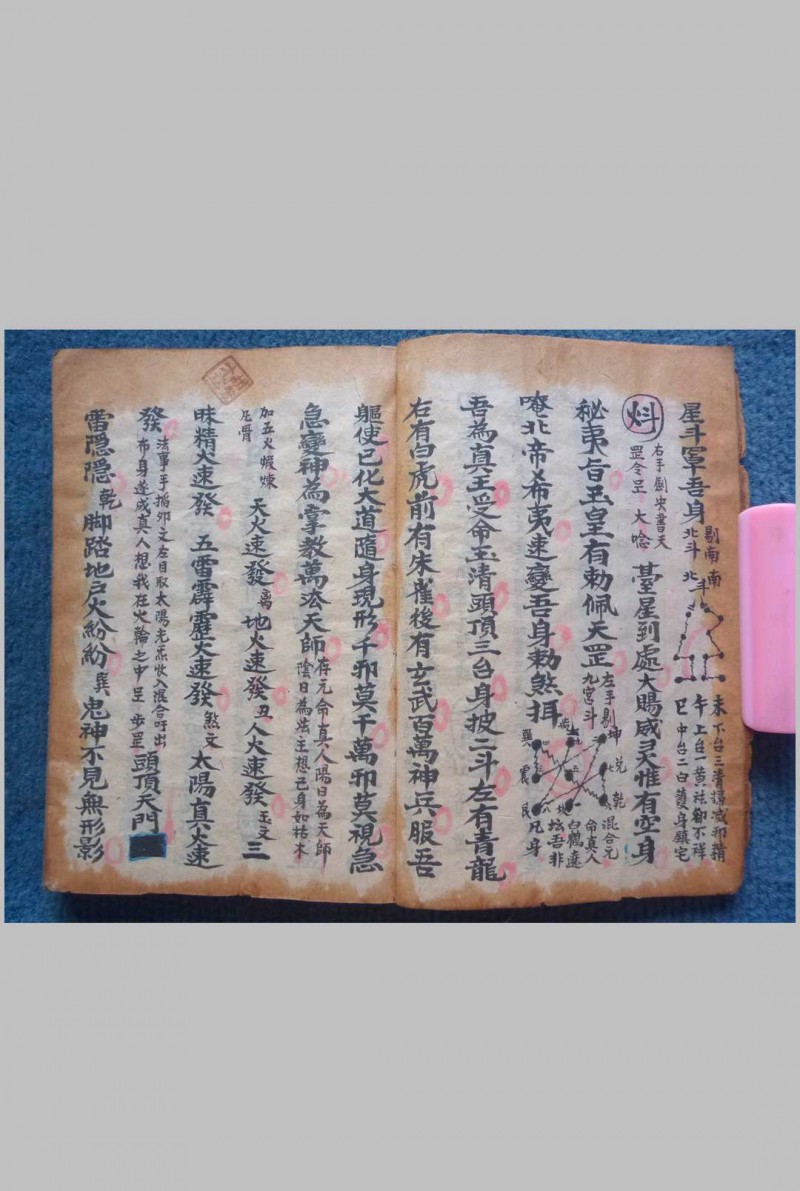 星斗罩吾身 剔南北斗 南 北斗 未下台三清掃滅邪精 午上台一黄祛卻不祥 巳中台二白護身鎮宅
右手劍尖書天罡令呈 大唸 臺星到處大賜威灵惟有空身
秘夷旨玉皇有勅佩天罡 左手剔九宮斗 坤 兑 乾 混合元命真人
唵北帝希夷速變吾身勅煞摄 巽 震 艮 地 白鶴遶坛吾非凡身
吾為真王受命玉清頭頂三台身披二斗左有青龍
右有白虎前有朱雀後有玄武百萬神兵服吾
軀使已化大道隨身現形千邪莫干萬邪莫視急
急變神為掌教萬法天師 存元命真人陽日為天師 陰日為法主想己身如枯木
加五火煅煉凡骨 天火速發 离 地火速發 丑 人火速發 玉文 三
昧精火速發 五雷霹靂火速發 煞文 太陽真火速
發 法事手掐卯文左目取太陽光炁收入混合吁出 布身遂成真人想我在火輪之中呈 步罡 頭頂天門
雷隠隠 乾 脚踏地户火紛紛 巽 鬼神不見無形影